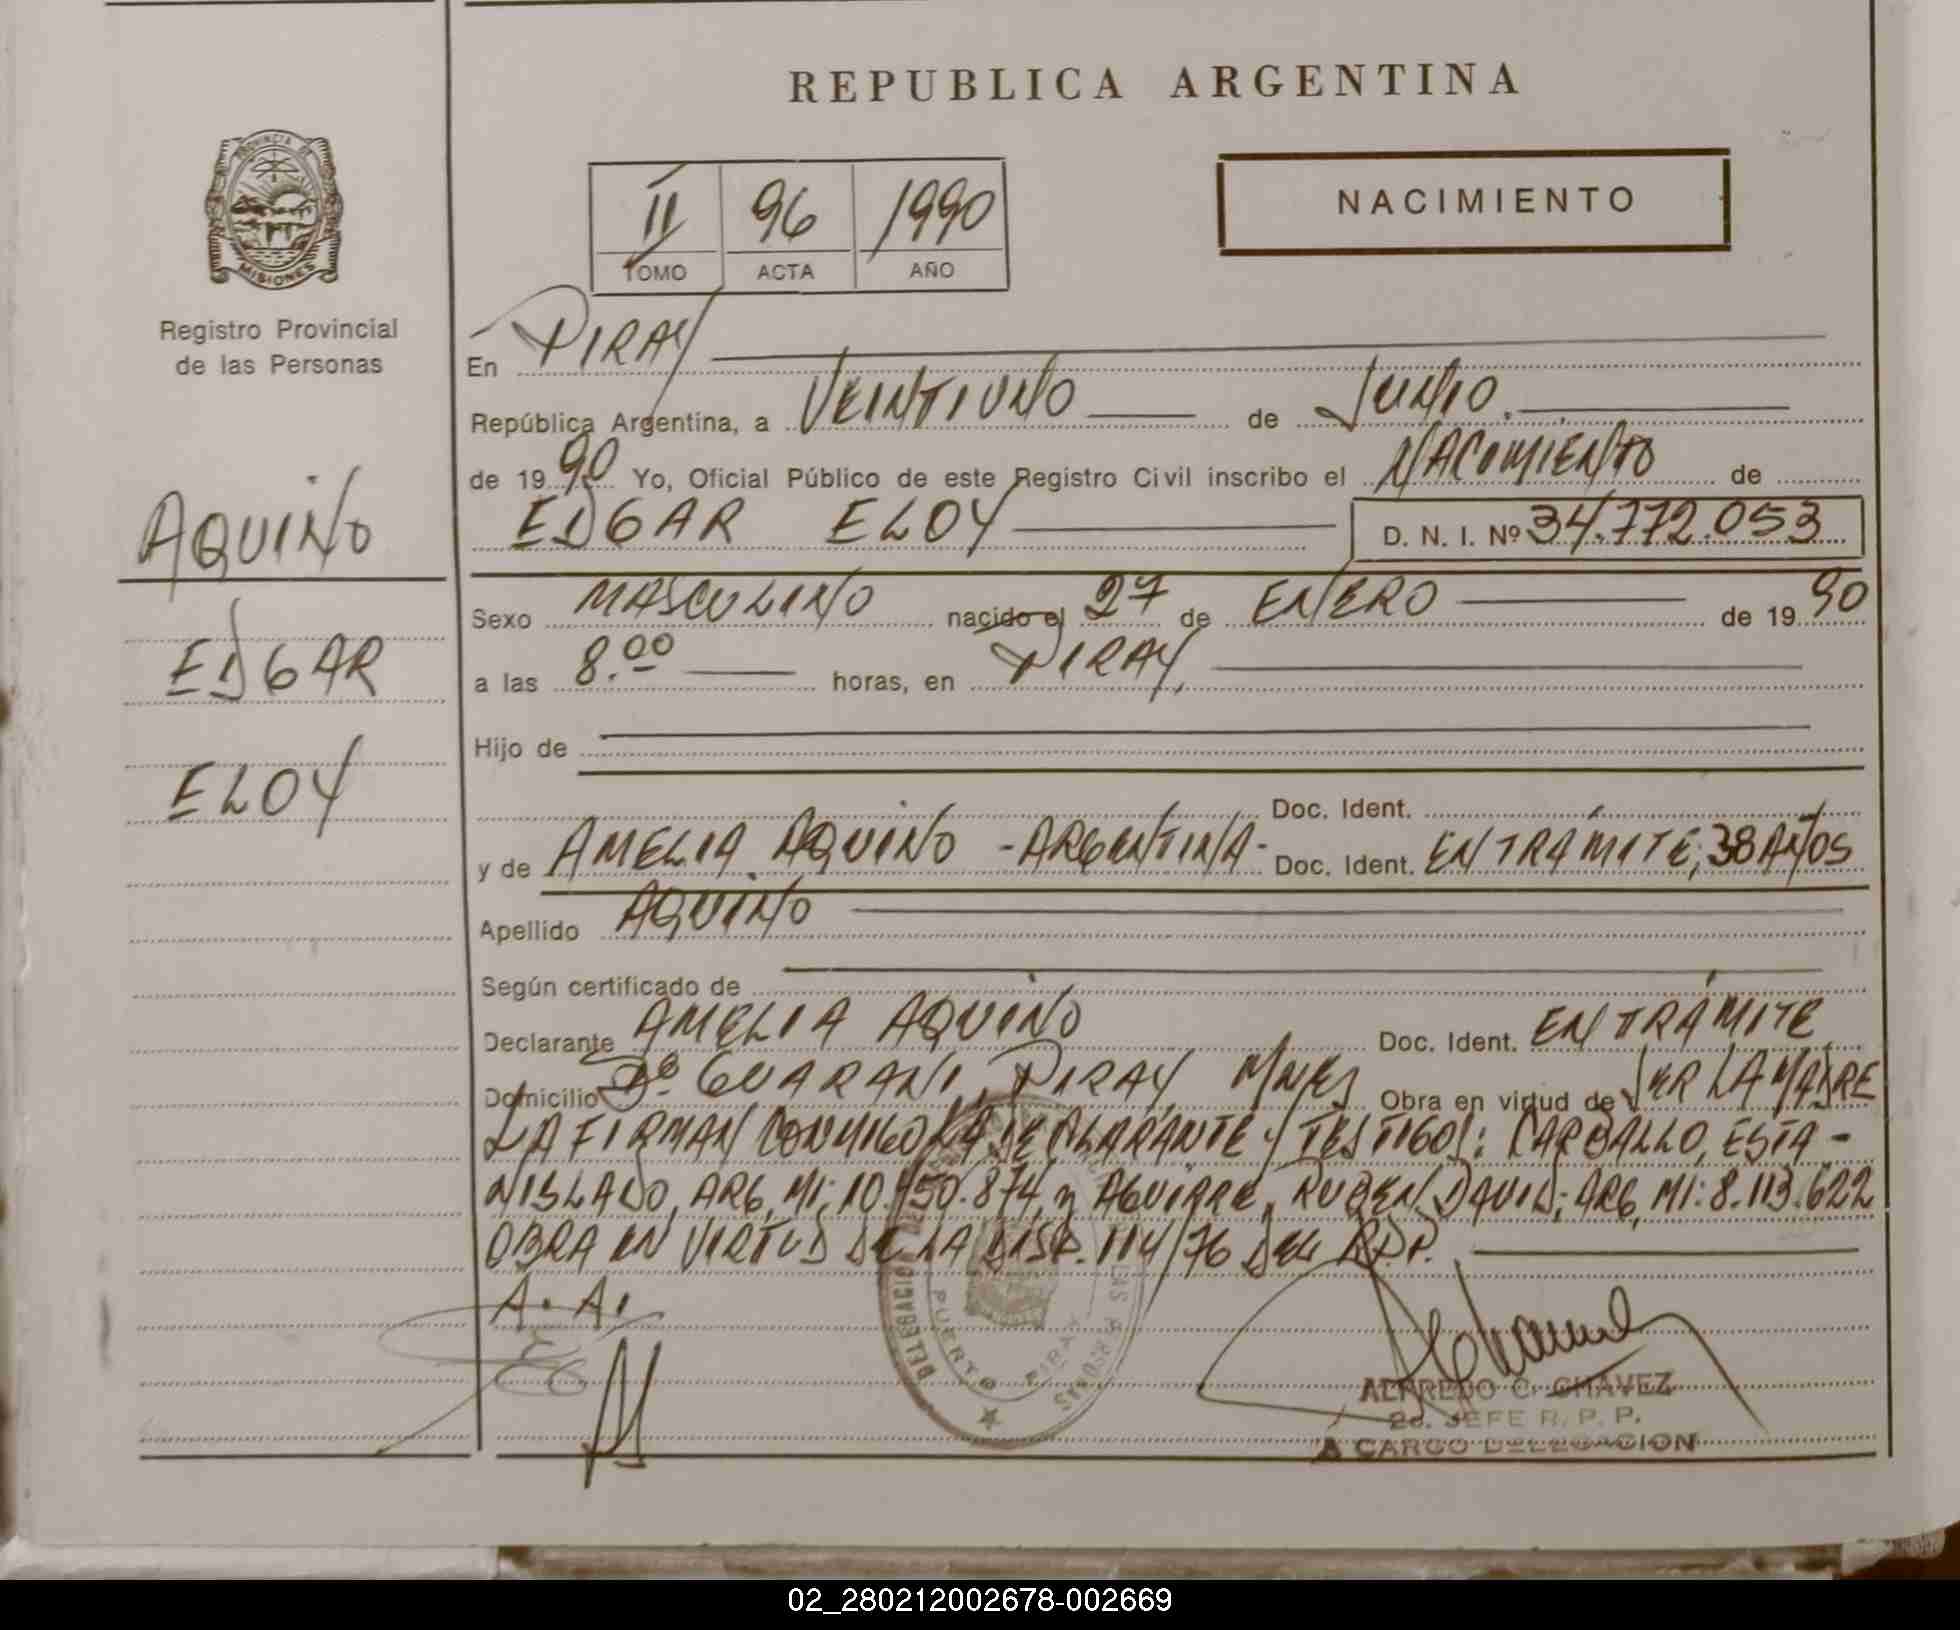 REPUBLICA ARGENTINA
PROVINCIA DE
MISIONES
Registro Provincial
de las Personas
NACIMIENTO
II 96 1990
TOMO ACTA AÑO
En PIRAY
República Argentina, a VEINTIUNO de JUNIO.
de 1990 Yo, Oficial Público de este Registro Civil inscribo el NACIMIENTO de
EDGAR ELOY D. N. I. Nº 34.772.053
AQUINO
EDGAR
ELOY
Sexo MASCULINO nacido el 27 de ENERO de 1990
a las 8.00 horas, en PIRAY,
Hijo de
Doc. Ident.
y de AMELIA AQUINO - ARGENTINA - Doc. Ident. EN TRÁMITE, 38 AÑOS
Apellido AQUINO
Según certificado de
Declarante AMELIA AQUINO Doc. Ident. EN TRÁMITE
Domicilio Bº GUARANI, PIRAY MNES Obra en virtud de SER LA MADRE
LA FIRMAN CONMIGO LA DECLARANTE y TESTIGOS: CARBALLO, ESTA-
NISLADO, ARG, MI: 10.450.874, y AGUIRRE, RUBEN DAVID; ARG, MI: 8.113.622
OBRA EN VIRTUD DE LA DISP. 114/76 DEL R.P.P.
A. A.
DELEGACION LAS PERSONAS
PUERTO PIRAY
ALFREDO C. CHAVEZ
2o. JEFE R. P. P.
A CARGO DELEGACION
02_280212002678-002669